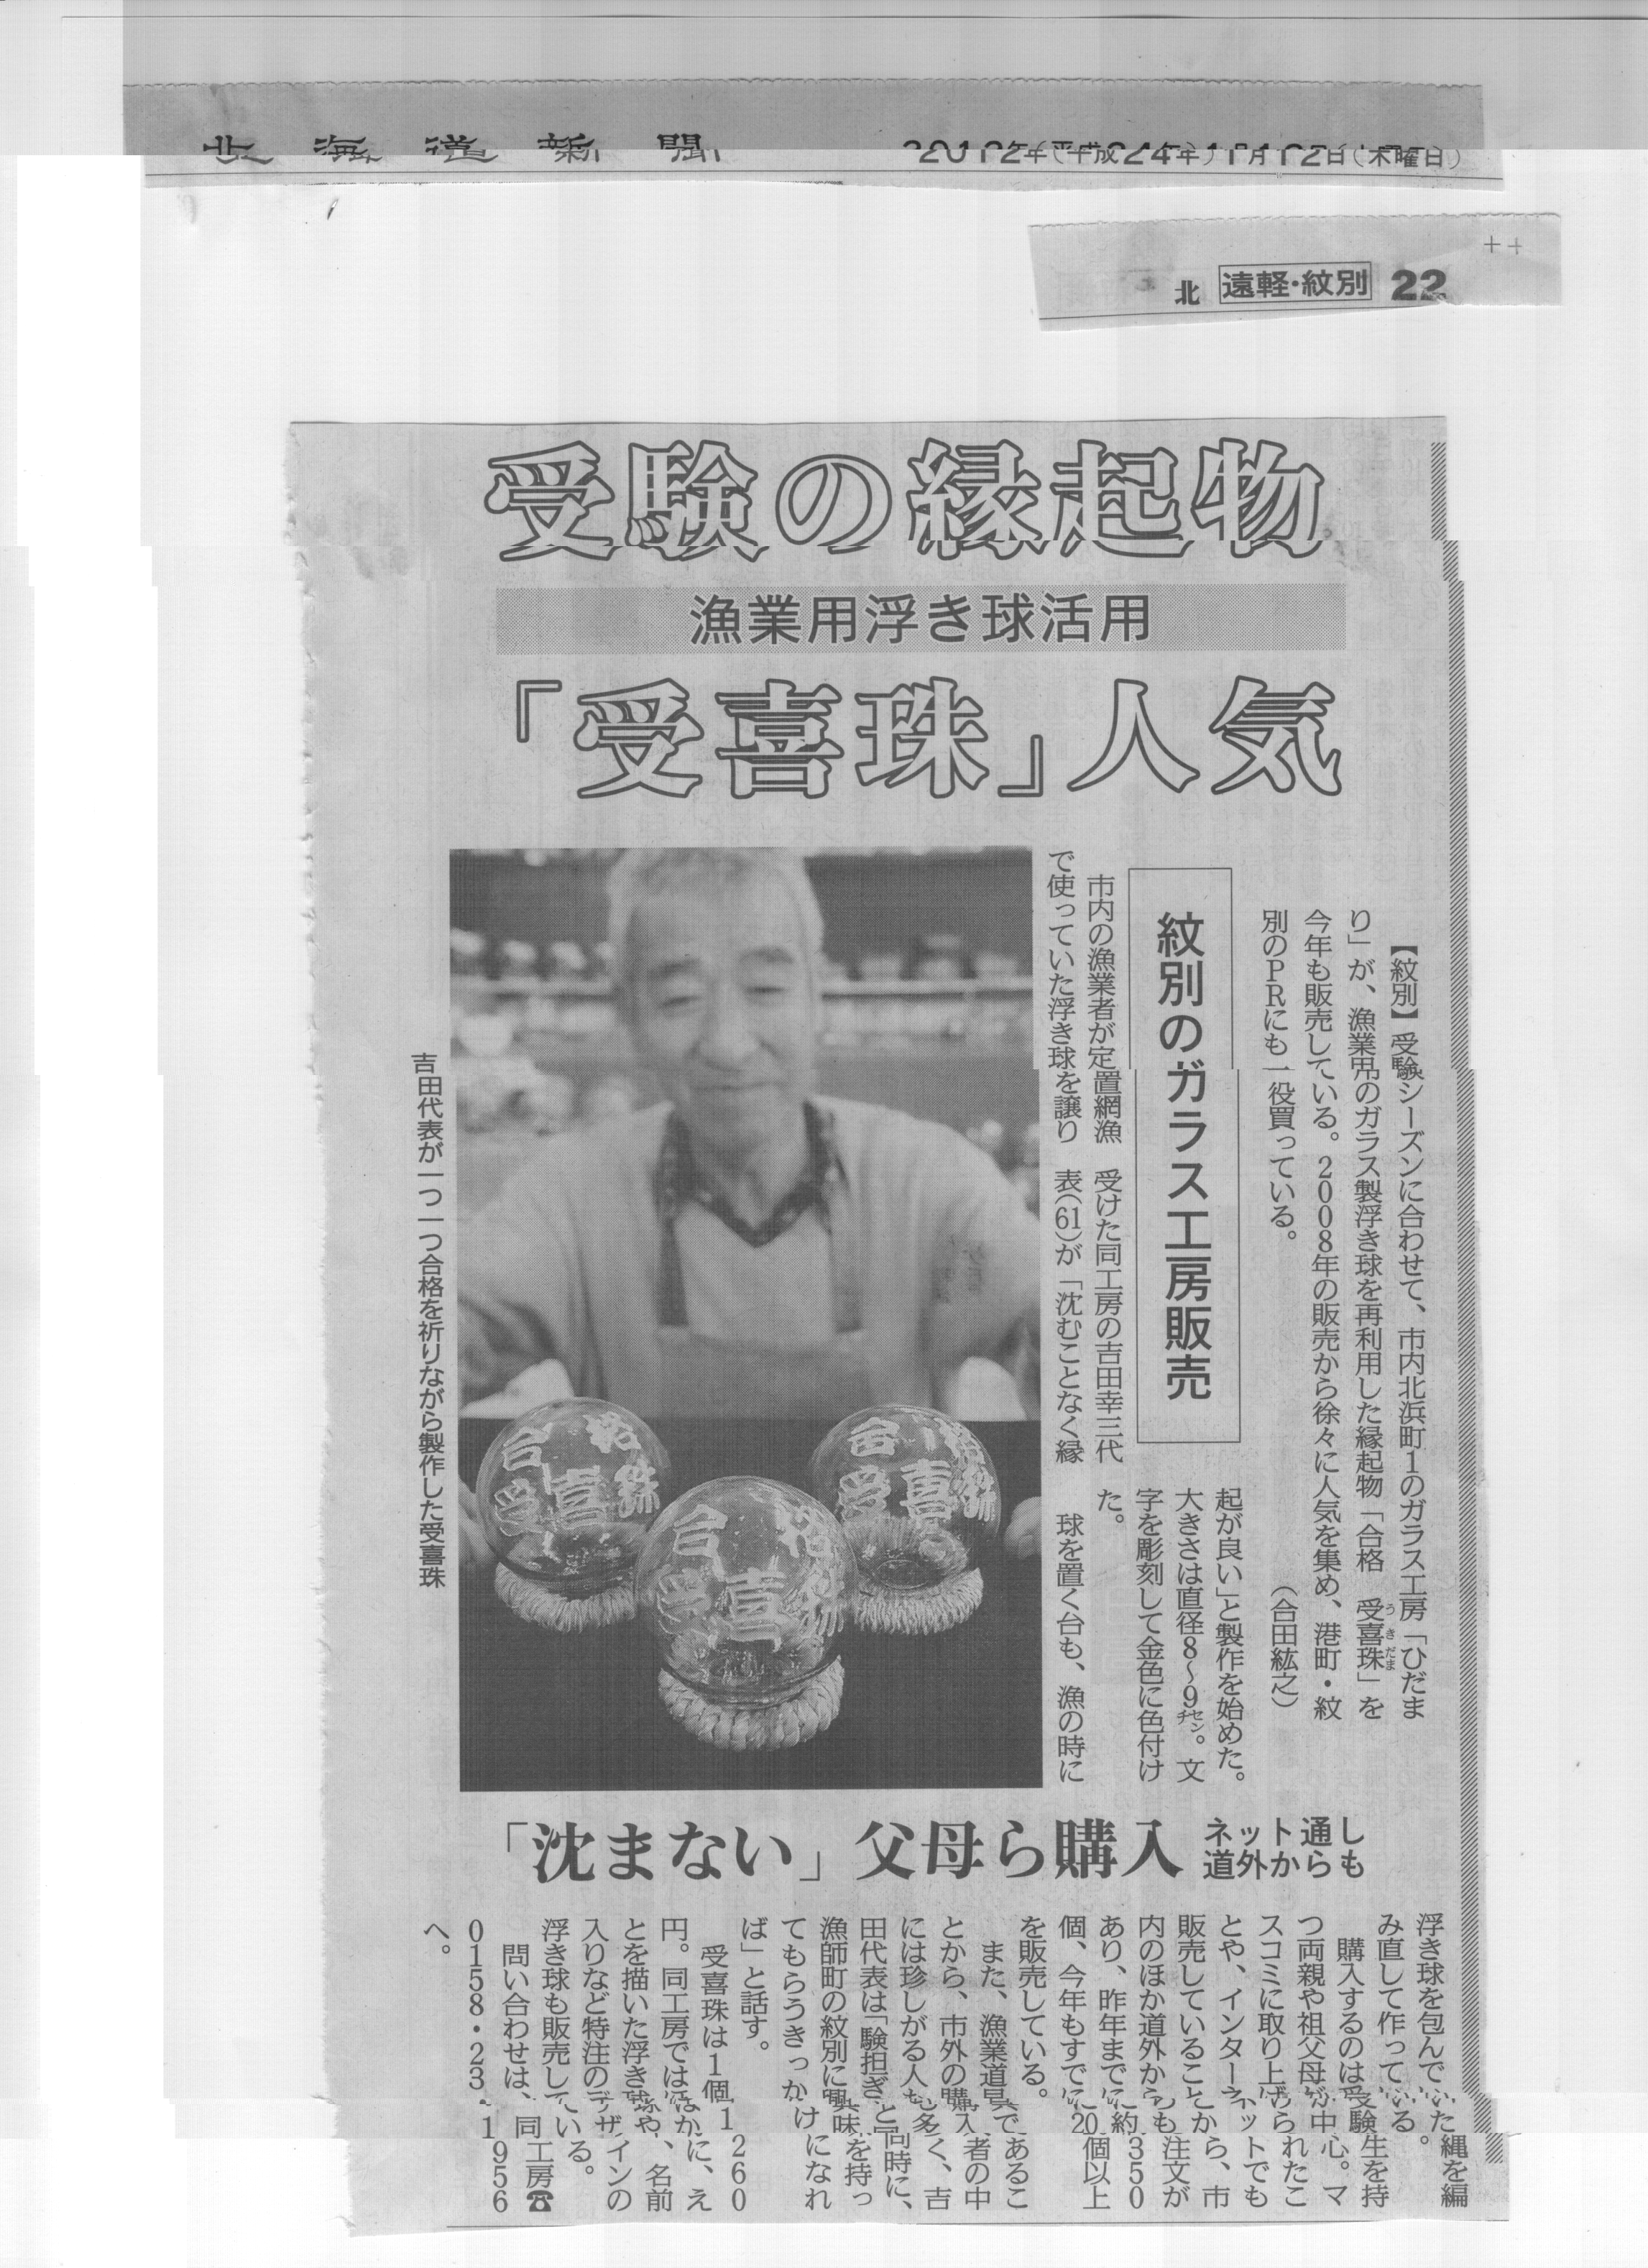 北海道新聞
2012年(平成24年)1月12日(木曜日)
北 遠軽・紋別 22
受験の縁起物
漁業用浮き球活用
「受喜珠」人気
【紋別】受験シーズンに合わせて、市内北浜町1のガラス工房「ひだま
り」が、漁業用のガラス製浮き球を再利用した縁起物「合格 受喜珠」を
うきだま
今年も販売している。2008年の販売から徐々に人気を集め、港町・紋
別のPRにも一役買っている。 (合田紘之)
紋別のガラス工房販売
市内の漁業者が定置網漁
で使っていた浮き球を譲り
受けた同工房の吉田幸三代
表(61)が「沈むことなく縁
起が良い」と製作を始めた。
大きさは直径8〜9センチ。文
字を彫刻して金色に色付け
た。
球を置く台も、漁の時に
合格
受喜珠
合格
受喜珠
合格
受喜珠
吉田代表が一つ一つ合格を祈りながら製作した受喜珠
「沈まない」父母ら購入
ネット通し
道外からも
浮き球を包んでいた縄を編
み直して作っている。
購入するのは受験生を持
つ両親や祖父母が中心。マ
スコミに取り上げられたこ
とや、インターネットでも
販売していることから、市
内のほか道外からも注文が
あり、昨年までに約350
個、今年もすでに20個以上
を販売している。
また、漁業道具であるこ
とから、市外の購入者の中
には珍しがる人も多く、吉
田代表は「験担ぎと同時に、
漁師町の紋別に興味を持っ
てもらうきっかけになれ
ば」と話す。
受喜珠は1個1260
円。同工房ではほかに、え
とを描いた浮き球や、名前
入りなど特注のデザインの
浮き球も販売している。
問い合わせは、同工房☎
0158・23・1956
へ。